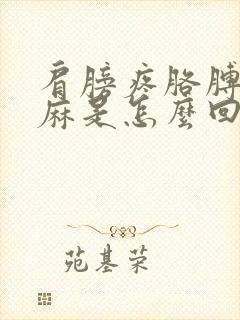 肩膀疼胳膊
麻是怎麼回
苑基荣